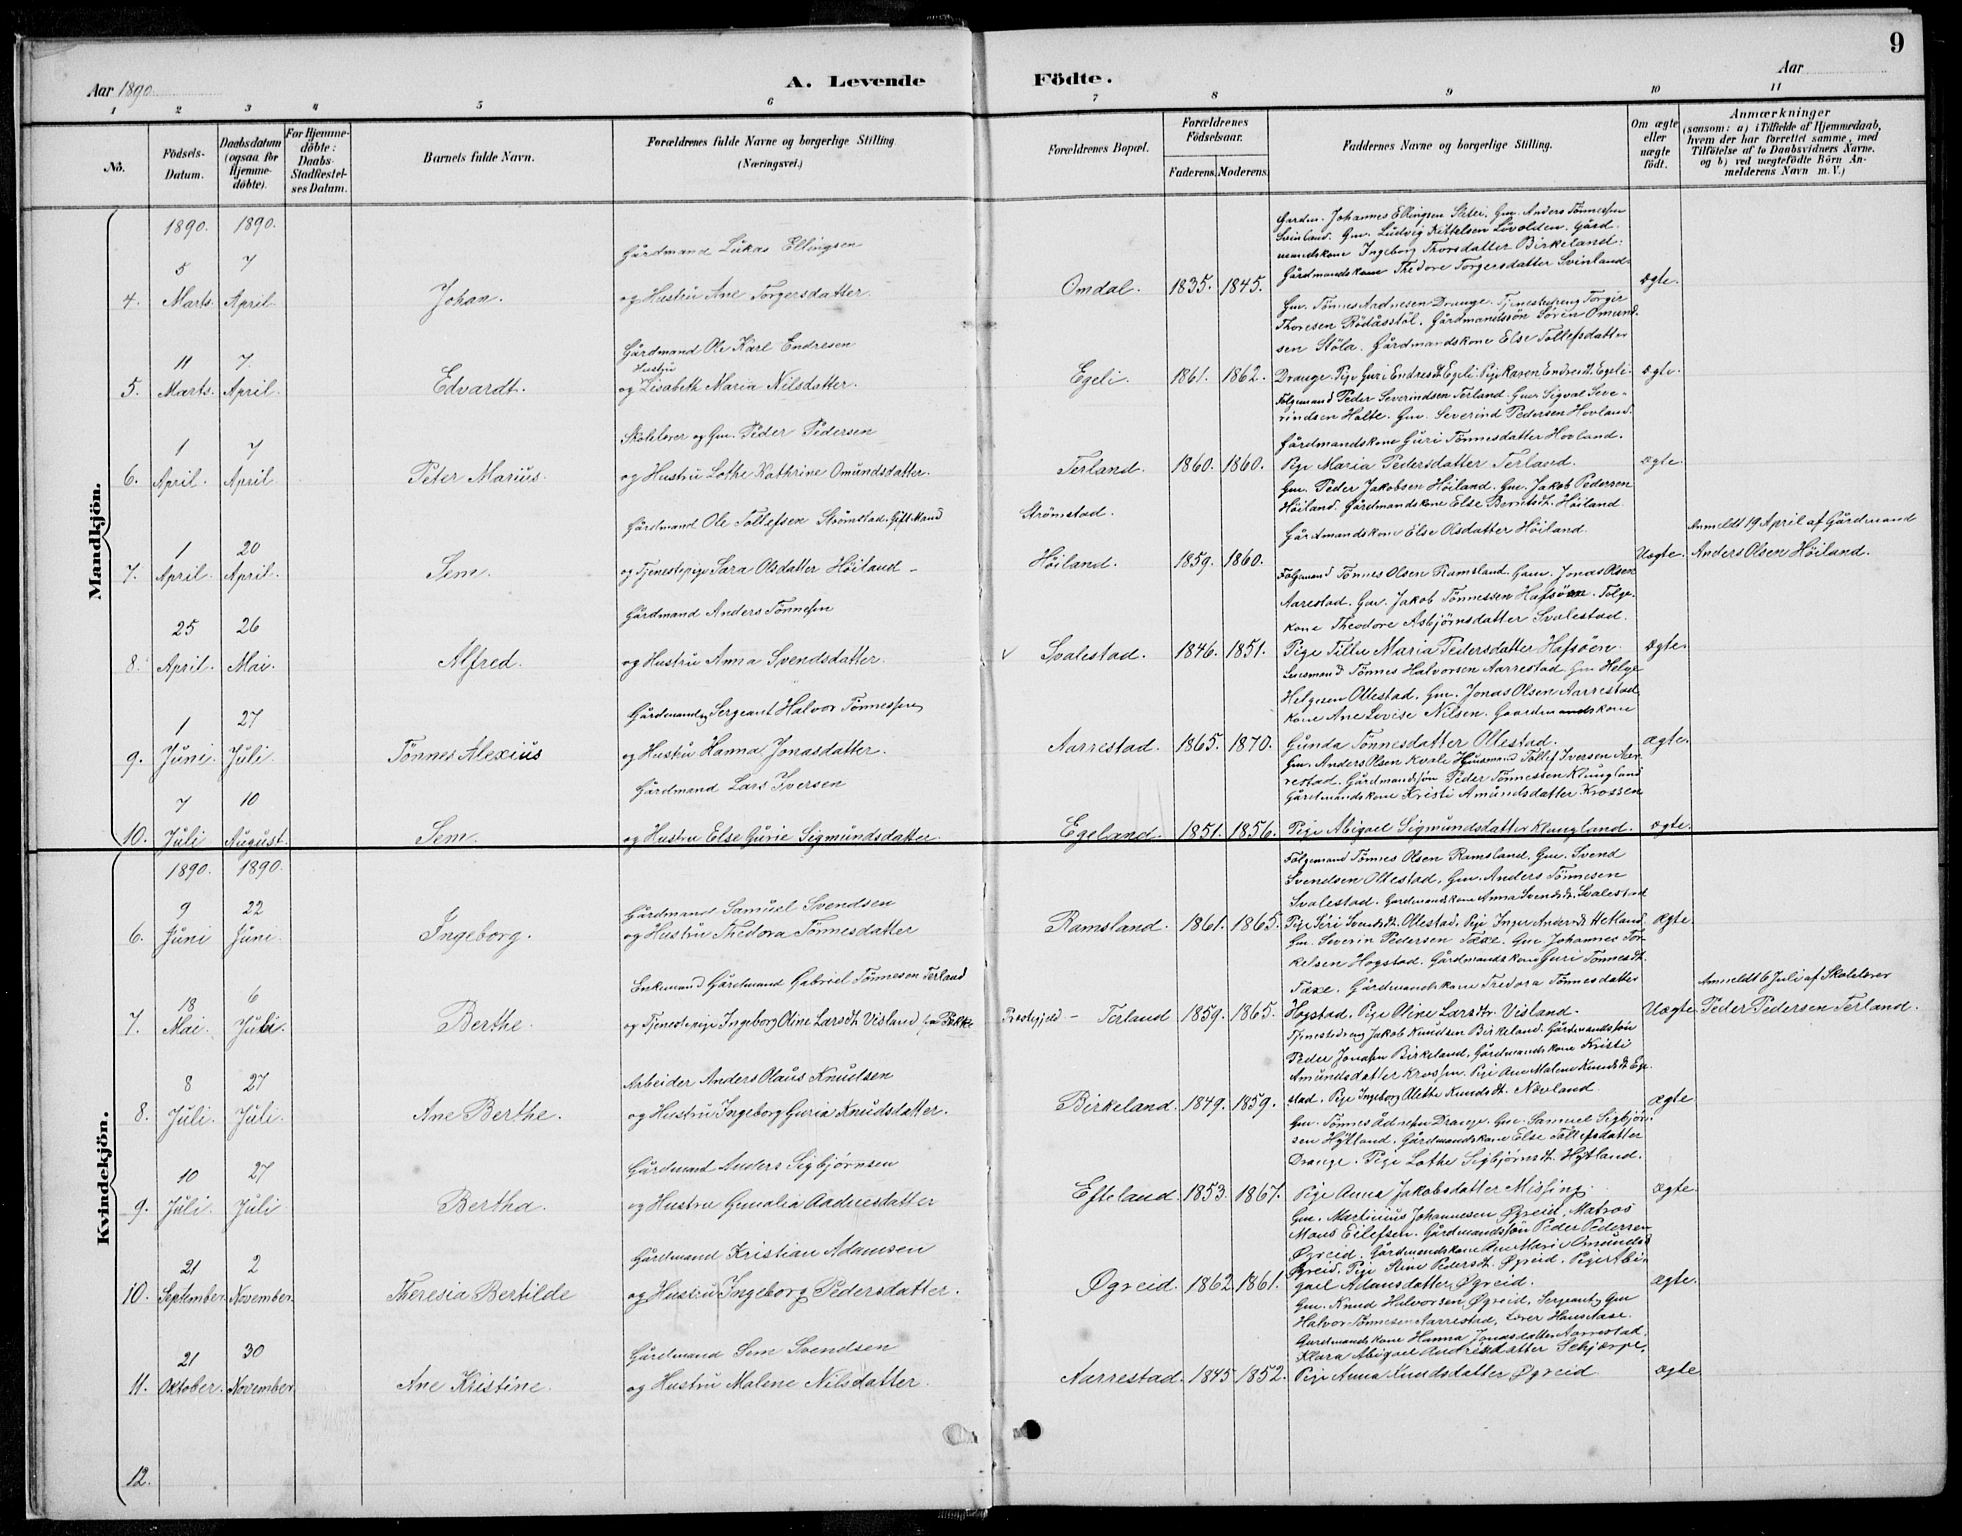 9
Aar 1890.
A. Levende Födte.
Aar
1 2 3 4 5 6 7 8 9 10 11
No.
Födsels-Datum.
Daabsdatum (ogsaa for Hjemme-döbte).
For Hjemme-döbte: Daabs-Stadfæstel-ses Datum.
Barnets fulde Navn.
Forældrenes fulde Navne og borgerlige Stilling (Næringsvei.)
Forældrenes Bopæl.
Forældrenes Födselsaar.
Faderens. Moderens.
Faddernes Navne og borgerlige Stilling.
Om ægte eller uægte födt.
Anmærkninger
(saasom: a) i Tilfælde af Hjemmedaab,
hvem der har forrettet samme, med
Tilföielse af to Daabsvidners Navne.
og b) ved uægtefödte Börn An-
melderens Navn m. V.)
Mandkjön.
1890. 1890.
4. 5 Marts. 7 April. Johan.
Gårdmand Lukas Ellingsen
og Hustru Ane Torgersdatter.
Omdal. 1835. 1845.
Gardm. Johannes Ellingsen Sletei, Gm. Anders Tönnessen
Svinland. Gm. Ludvig Kittelsen Lovolden. Gård-
mandskone Ingeborg Thorsdatter Birkeland.
Gårdmandskone Thedore Torgersdatter Svinland.
ægte.
5. 11 Marts. 7. April. Edvardt.
Gårdmand Ole Karl Endresen
og Hustru Lisabeth Maria Nilsdatter.
Egeli. 1861. 1862.
Gm. Tönnes Aadnesen Drange. Tjenestedreng Torger
Thoresen Rödåsstöl. Gårdmandssön Sören Omund-
sen Stöla. Gårdmandskone Else Tollefsdatter
Drange. Pige Guri Endresdt. Egeli. Pige Karen Endresdt. Egeli
ægte.
6. 1 April. 7 April Peter Marius.
Skolelærer og Gm. Peder Pedersen
og Hustru Lothe Kathrine Omundsdatter.
Terland. 1860. 1860.
Folgemand Peder Severindsen Terland. Gm. Sigval Seve-
rindsen Halte. Gm. Severind Pedersen Hovland.
Gårdmandskone Guri Tönnesdatter Hovland.
Pige Maria Pedersdatter Terland.
ægte.
7. 1 April. 20 April. Sem.
Gårdmand Ole Tollefsen Strömstad. Gift Mand
og Tjenestepige Sara Olsdatter Höiland -
Strömstad.
Höiland. 1859. 1860.
Gm. Peder Jakobsen Höiland. Gm. Jakob Pedersen
Höiland. Gårdmandskone Else Berntsdt. Höiland.
Gårdmandskone Else Olsdatter Höiland.
Uægte.
Anmeldt 19 April af Gårdmand
Anders Olsen Höiland.
8. 25 April. 26 Mai. Alfred.
Gårdmand Anders Tönnessen
og Hustru Anna Svendsdatter.
Svalestad. 1846. 1851.
Folgemand Tönnes Olsen Ramsland. Gm. Jonas Olsen
Aarestad. Gm. Jakob Tönnessen Hafsöen. Folge-
kone Theodore Asbjörnsdatter Svalestad.
Pige Tilla Maria Pedersdatter Hafsöen.
ægte.
9. 1 Juni. 27 Juli. Tönnes Alexius
Gårdmand og Sergeant Halvor Tönnessen
og Hustru Hanna Jonasdatter.
Aarrestad. 1865. 1870.
Lensmand Tönnes Halvorsen Aarrestad. Gm Helge
Helgesen Ollestad. Gm. Jonas Olsen Aarrestad
Kone Ane Lovise Nilsen. Gaardmandskone
Gunda Tönnesdatter Ollestad.
ægte.
10. 7 Juli 10 August. Sem.
Gårdmand Lars Iversen
og Hustru Else Gurie Sigmundsdatter.
Egeland. 1851. 1856.
Gm. Anders Olsen Kvale Huusmand Tollef Iversen Aar-
restad. Gårdmandssön Peder Tönnesen Klungland
Gårdmandskone Kristi Amundsdatter Krossen
Pige Abigael Sigmundsdatter Klungland.
ægte.
Kvindekjön.
1890. 1890.
6. 9 Juni 22 Juni. Ingeborg.
Gårdmand Samuel Svendsen
og Hustru Thedora Tönnesdatter
Ramsland. 1861. 1865.
Folgemand Tönnes Olsen Ramsland. Gm. Svend
Svendsen Ollestad. Gm. Anders Tönnesen
Svalestad. Gårdmandskone Anna Svendsdt. Svalestad
Pige Siri Svendsdt. Ollestad. Pige Inger Andersdt. Hetland.
ægte.
7. 18 Mai. 6 Juli. Berthe.
Enkemand Gårdmand Gabriel Tönnesen Terland
og Tjenestepige Ingeborg Oline Larsdt. Visland,
Præstegjeld - Terland 1859. 1865.
Gm. Severin Pedersen Taxe. Gm. Johannes Tor-
kelsen Hogstad. Gårdmandskone Guri Tönnesdt.
Taxe. Gårdmandskone Tredora Tönnesdatter
Hogstad. Pige Oline Larsdtr. Visland.
Uægte.
Anmeldt 6 Juli af Skolelærer
Peder Pedersen Terland.
8. 8 Juli. 27 Juli. Ane Berthe.
Arbeider Anders Olaus Knudsen
og Hustru Ingeborg Guria Knudsdatter.
Birkeland. 1849. 1859.
Tjenestedreng Jakob Knudsen Birkeland. Gårdmandssön
Peder Jonassen Birkeland. Gårdmandskone Kristi
Amundsdatter Krossen. Pige Ane Malene Knudsdt. Ege-
stad. Pige Ingeborg Olette Knudsdt. Nevland.
ægte
9. 10 Juli. 27 Juli Bertha.
Gårdmand Anders Sigbjörnsen
og Hustru Gunalia Aadnesdatter
Efteland. 1853. 1867.
Gm. Tönnes Adnesen Drange. Gm. Samuel Sigbjörn-
sen Hÿtland. Gårdmandskone Else Tollefsdatter
Drange. Pige Lothe Sigbjörnsdt. Hÿtland.
Pige Anna Jakobsdatter Missing.
ægte.
10. 21 September. 2 November. Theresia Bertilde
Gårdmand Kristian Adamsen
og Hustru Ingeborg Pedersdatter.
Øgreid. 1862. 1861.
Gm. Martinius Johannesen Øgreid. Matros
Mons Eilefsen. Gårdmandssön Peder Pedersen
Øgreid. Gårdmandskone Ane Marie Omundsd
Øgreid. Pige Stine Pedersdt. Øgreid. Pige Abi-
gael Adamsdatter Øgreid.
ægte.
11. 21 Oktober. 30 November. Ane Kristine.
Gårdmand Sem Svendsen
og Hustru Malene Nilsdatter.
Aarrestad. 1845 1852.
Gm. Knud Halvorsen Øgreid. Sergeant og Gm
Halvor Tönnesen Aarrestad, Lærer
Gaardmandskone Hanna Jonasdatter Aarrestad.
Klara Abigael Andreasdatter
Pige Anna Knudsdatter Øgreid
ægte
12.